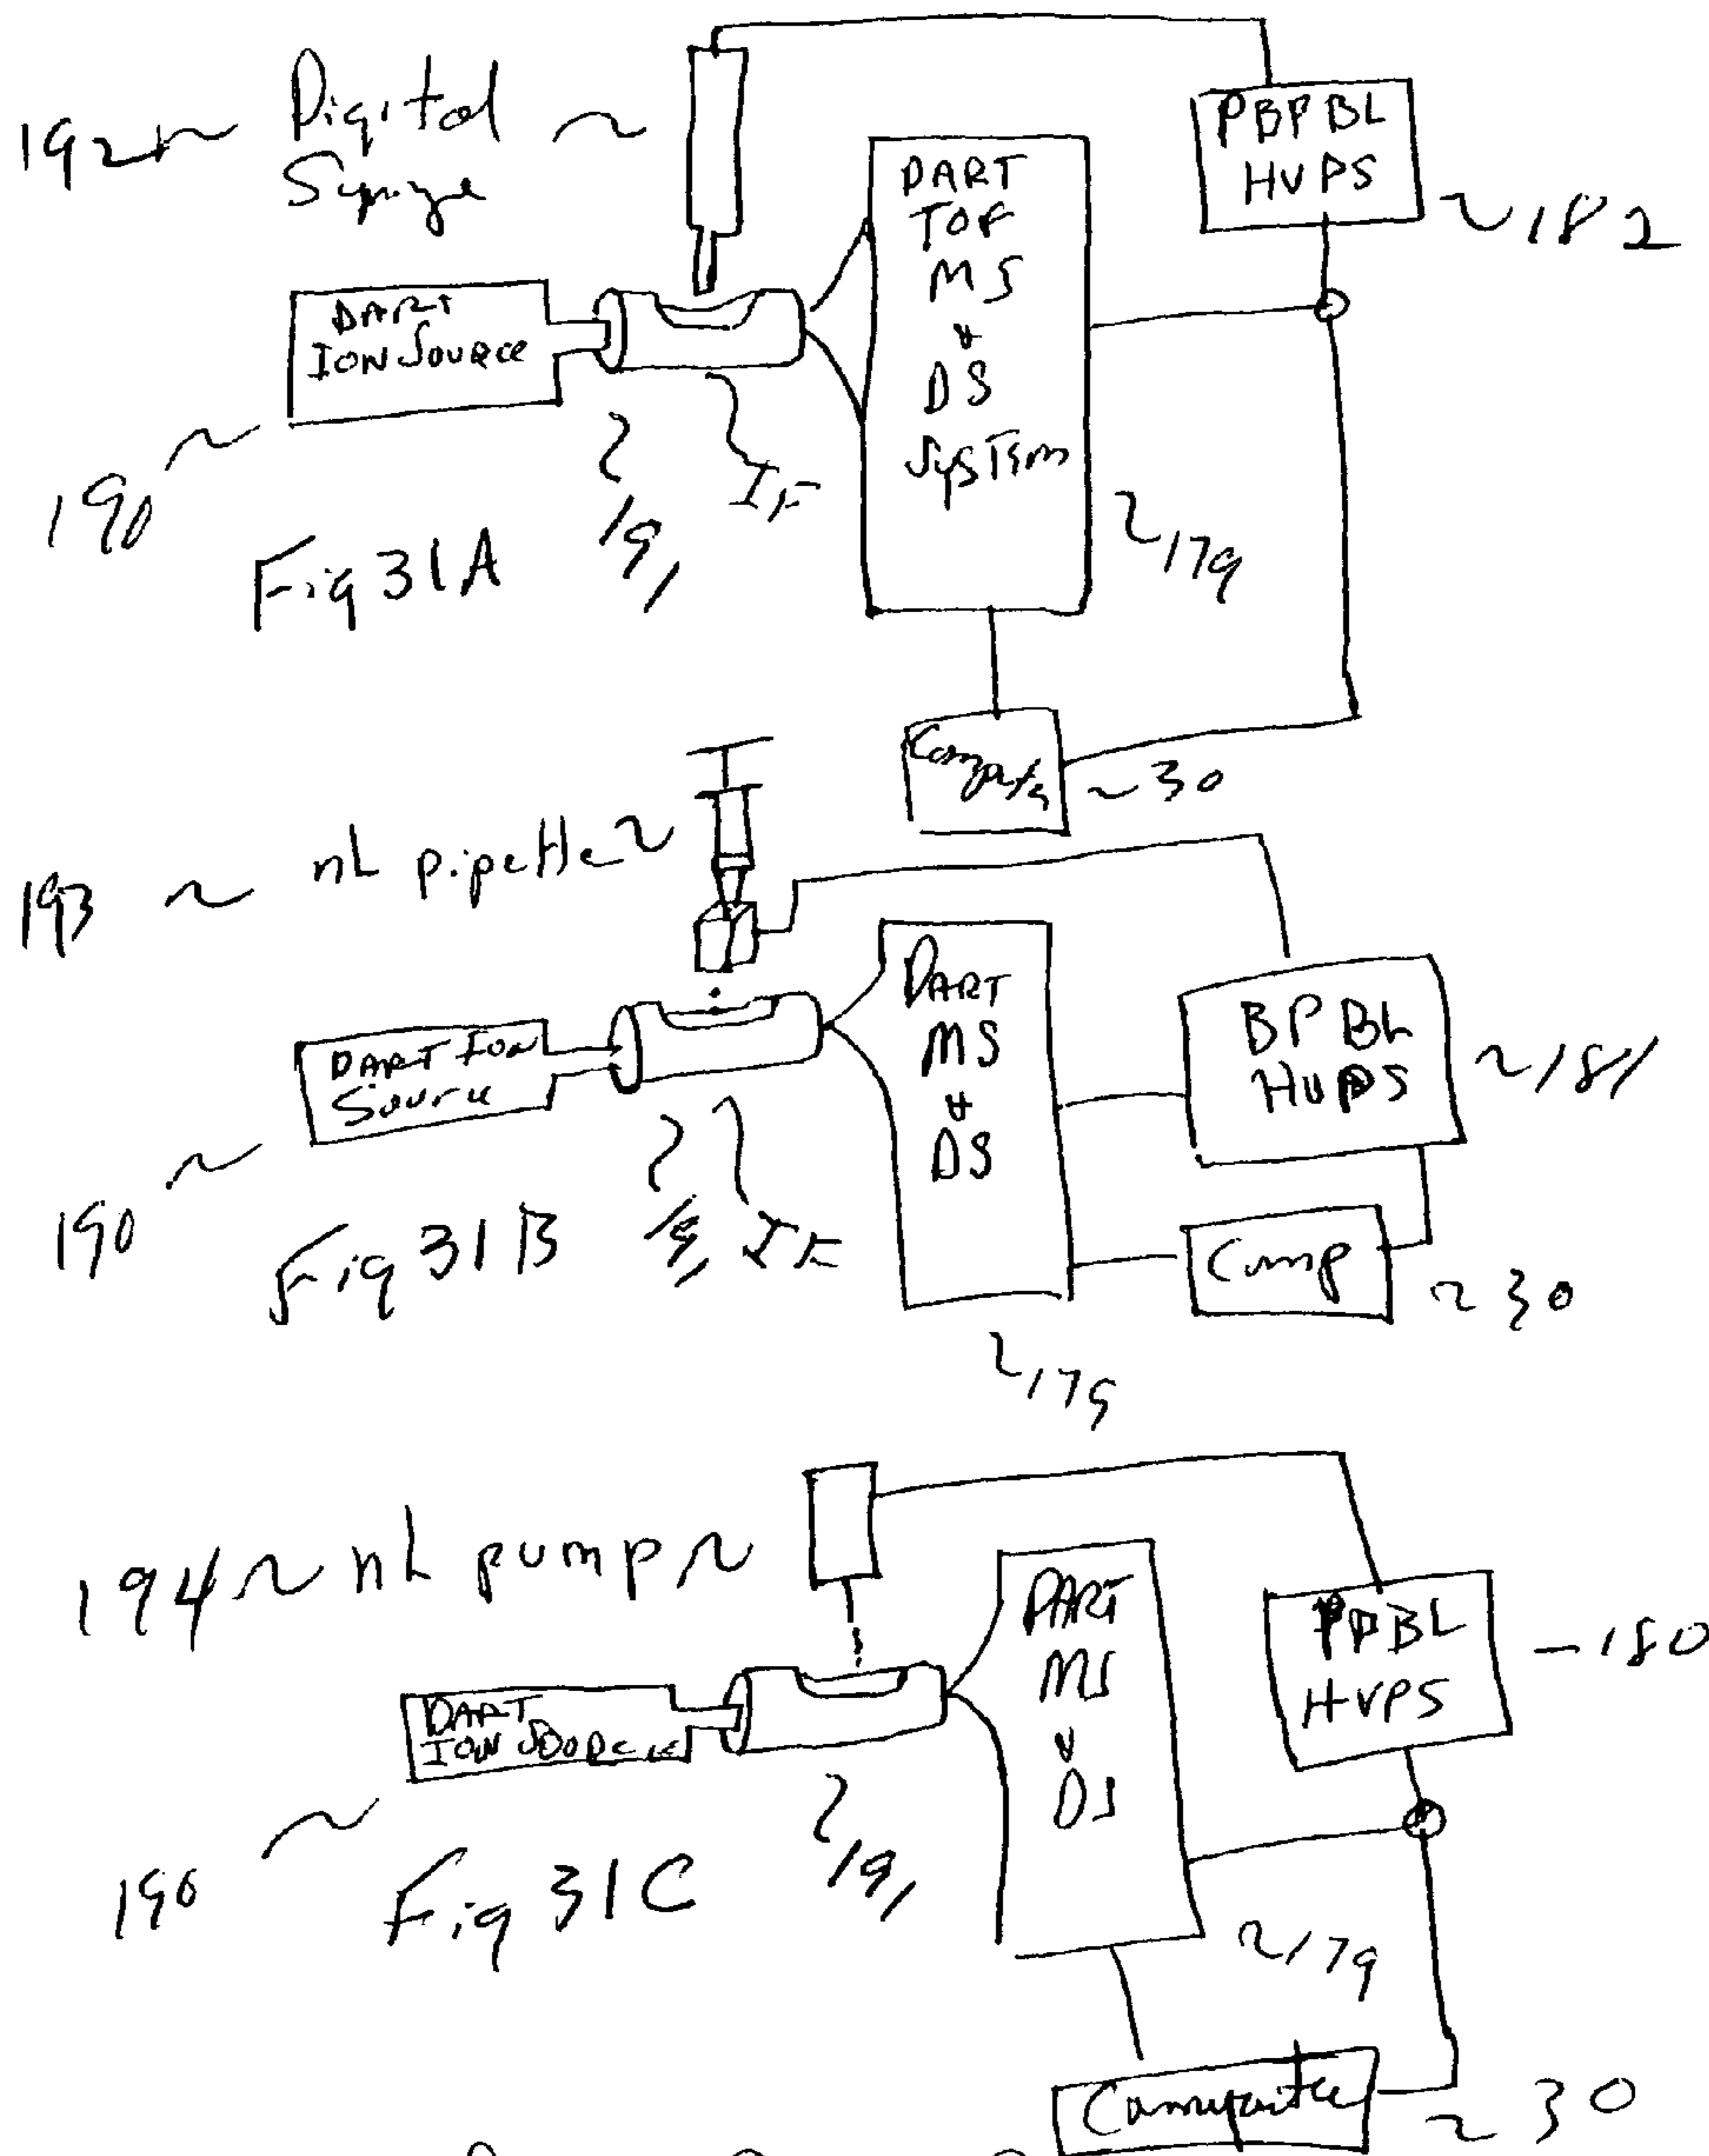 192 ~ Digital ~
Syringe
PBPBL
HVPS
~ 182
DART
TOF
MS
&
DS
System
DART
ION Source
190 ~
~ 191
IF
~ 179
Fig 31A
Computer
~ 30
193 ~ nL pipette ~
DART
MS
&
DS
BPBL
HVPS
~ 181
DART Ion
Source
190 ~
~ 191
IF
Fig 31B
Comp
~ 30
~ 179
194 ~ nL pump ~
DART
MS
&
DS
PPBL
HVPS
- 180
DART
ION Source
190 ~
~ 191
Fig 31C
~ 179
Computer
~ 30